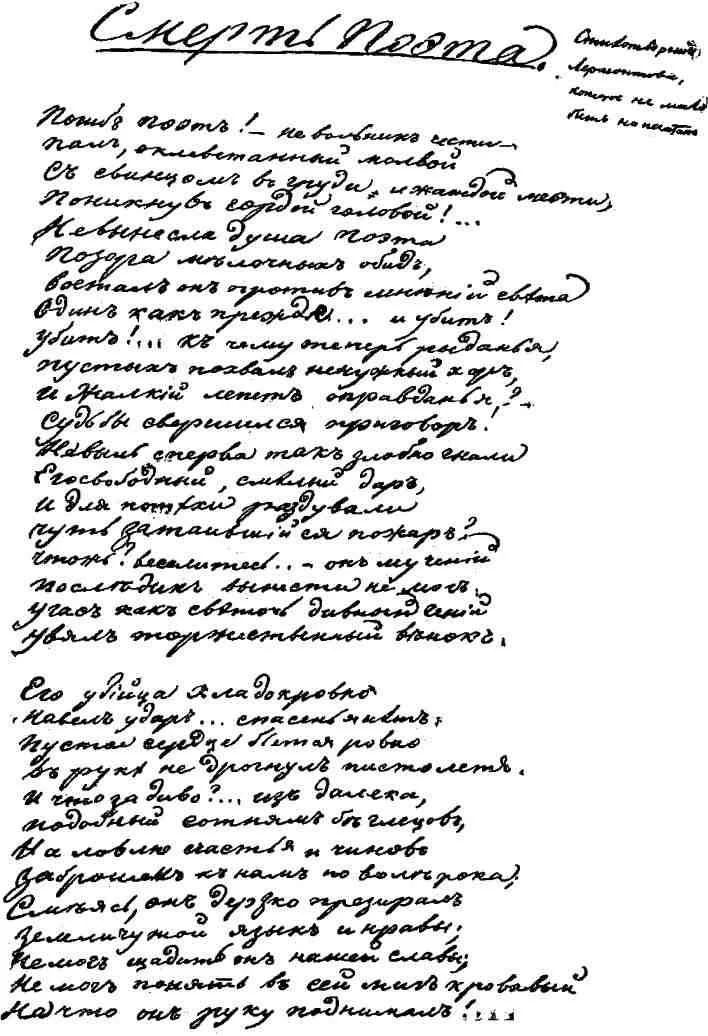 Смерть Поэта.
Стихотвореніе
Лермонтова,
которое не может
быть напечатано
Погибъ поэтъ! — невольникъ чести —
палъ, оклеветанный молвой
Съ свинцомъ въ груди, и жаждой мести,
Поникнувъ гордой головой!...
Невынесла душа поэта
Позора мѣлочныхъ обидъ,
возсталъ онъ противъ мнѣній свѣта
Одинъ какъ прежде... и убитъ!
убитъ!... къ чему теперь рыданья,
пустыхъ похвалъ ненужный хоръ,
и жалкій лепетъ оправданья,? —
Судьбы свершился приговоръ!
Невыль сперва такъ злобно гнали
Его свободный, смѣлый даръ,
и для потѣхи раздували
чуть затаившійся пожаръ?
чтожъ? веселитесь.. — онъ мученій
послѣднихъ вынести не могъ.
угасъ какъ свѣточь дивный геній
увялъ торжественный вѣнокъ.
Его убійца хладокровно
навелъ ударъ... спасенья нѣтъ.
Пустое сердце бьется ровно
въ рукѣ не дрогнулъ пистолетъ.
И что за диво?... изъ далека,
подобный сотнямъ бѣглецовъ,
На ловлю счастья и чиновъ
Заброшенъ къ намъ по волѣ рока;
Смѣясь, онъ дерзко презиралъ
земли чужой языкъ и нравы;
Не могъ щадить онъ нашей славы;
Не могъ понять въ сей мигъ кровавый
На что онъ руку поднималъ!...